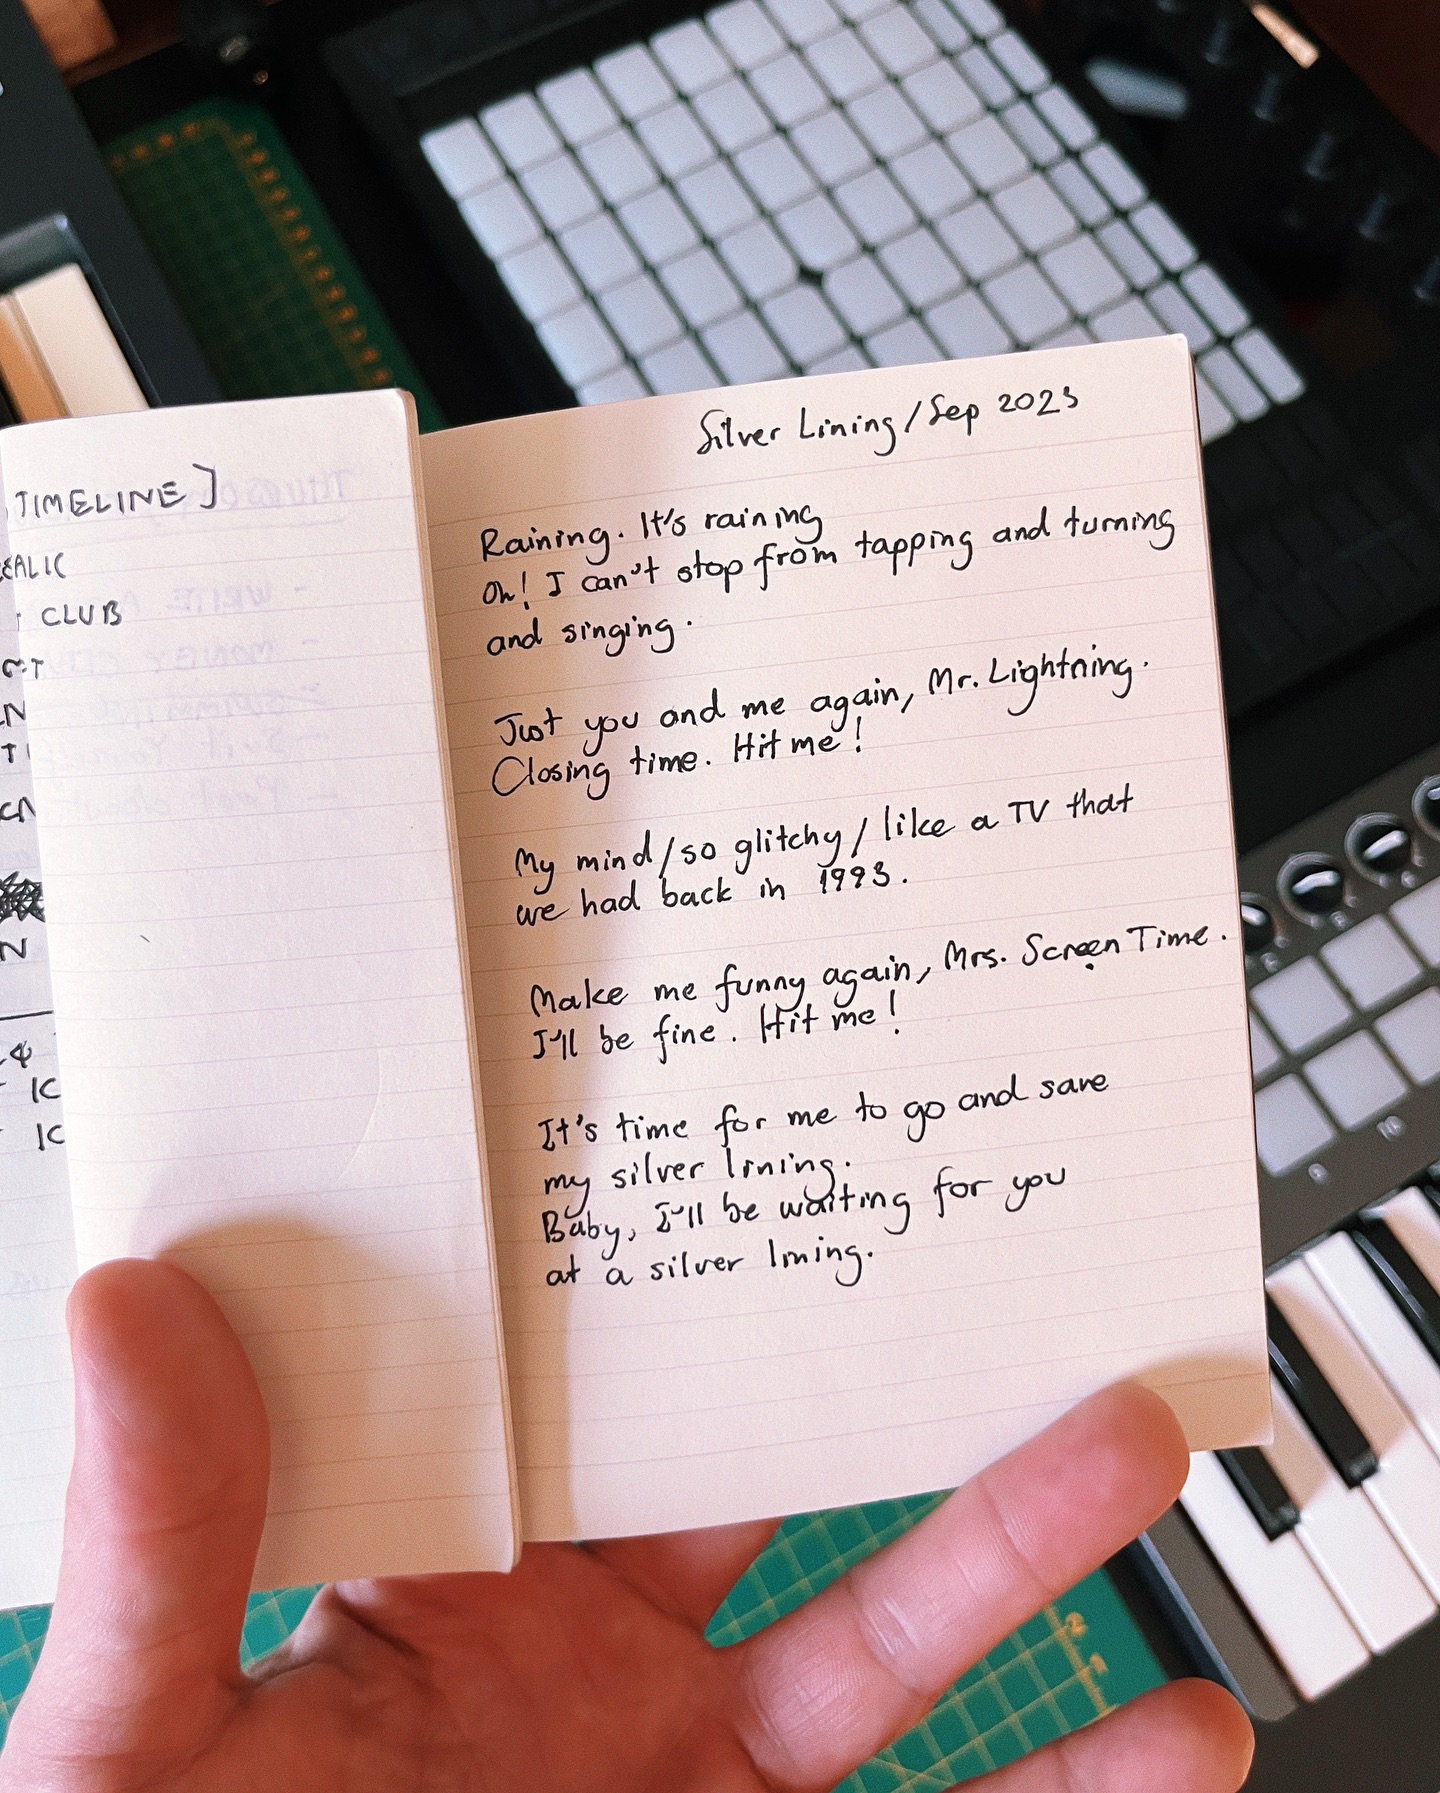 TIMELINE]
CLUB
IC
IC
Silver Lining/Sep 2023
Raining. It's raining
Oh! I can't stop from tapping and turning
and singing.
Just you and me again, Mr. Lightning.
Closing time. Hit me!
My mind/so glitchy/like a TV that
we had back in 1993.
Make me funny again, Mrs. Screen Time.
I'll be fine. Hit me!
It's time for me to go and save
my silver lining.
Baby, I'll be waiting for you
at a silver lining.